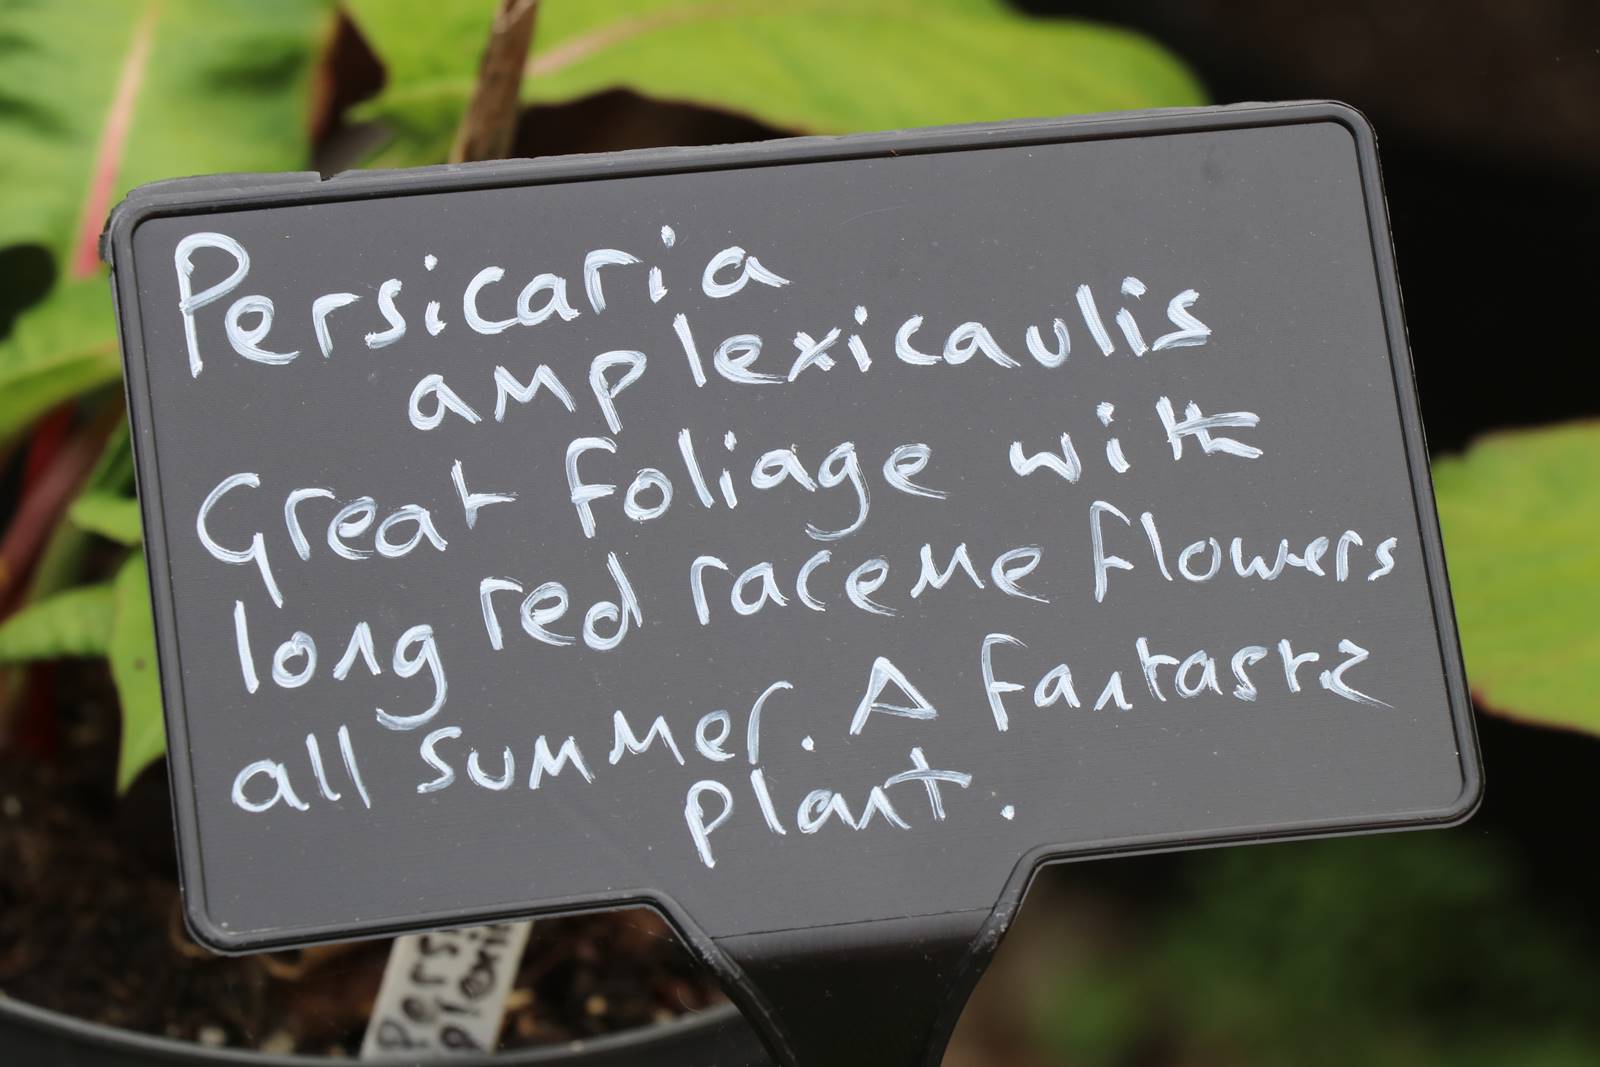 Persicaria
amplexicaulis
Great foliage with
long red raceme flowers
all summer. A fantastic
plant.
Pers
plexi